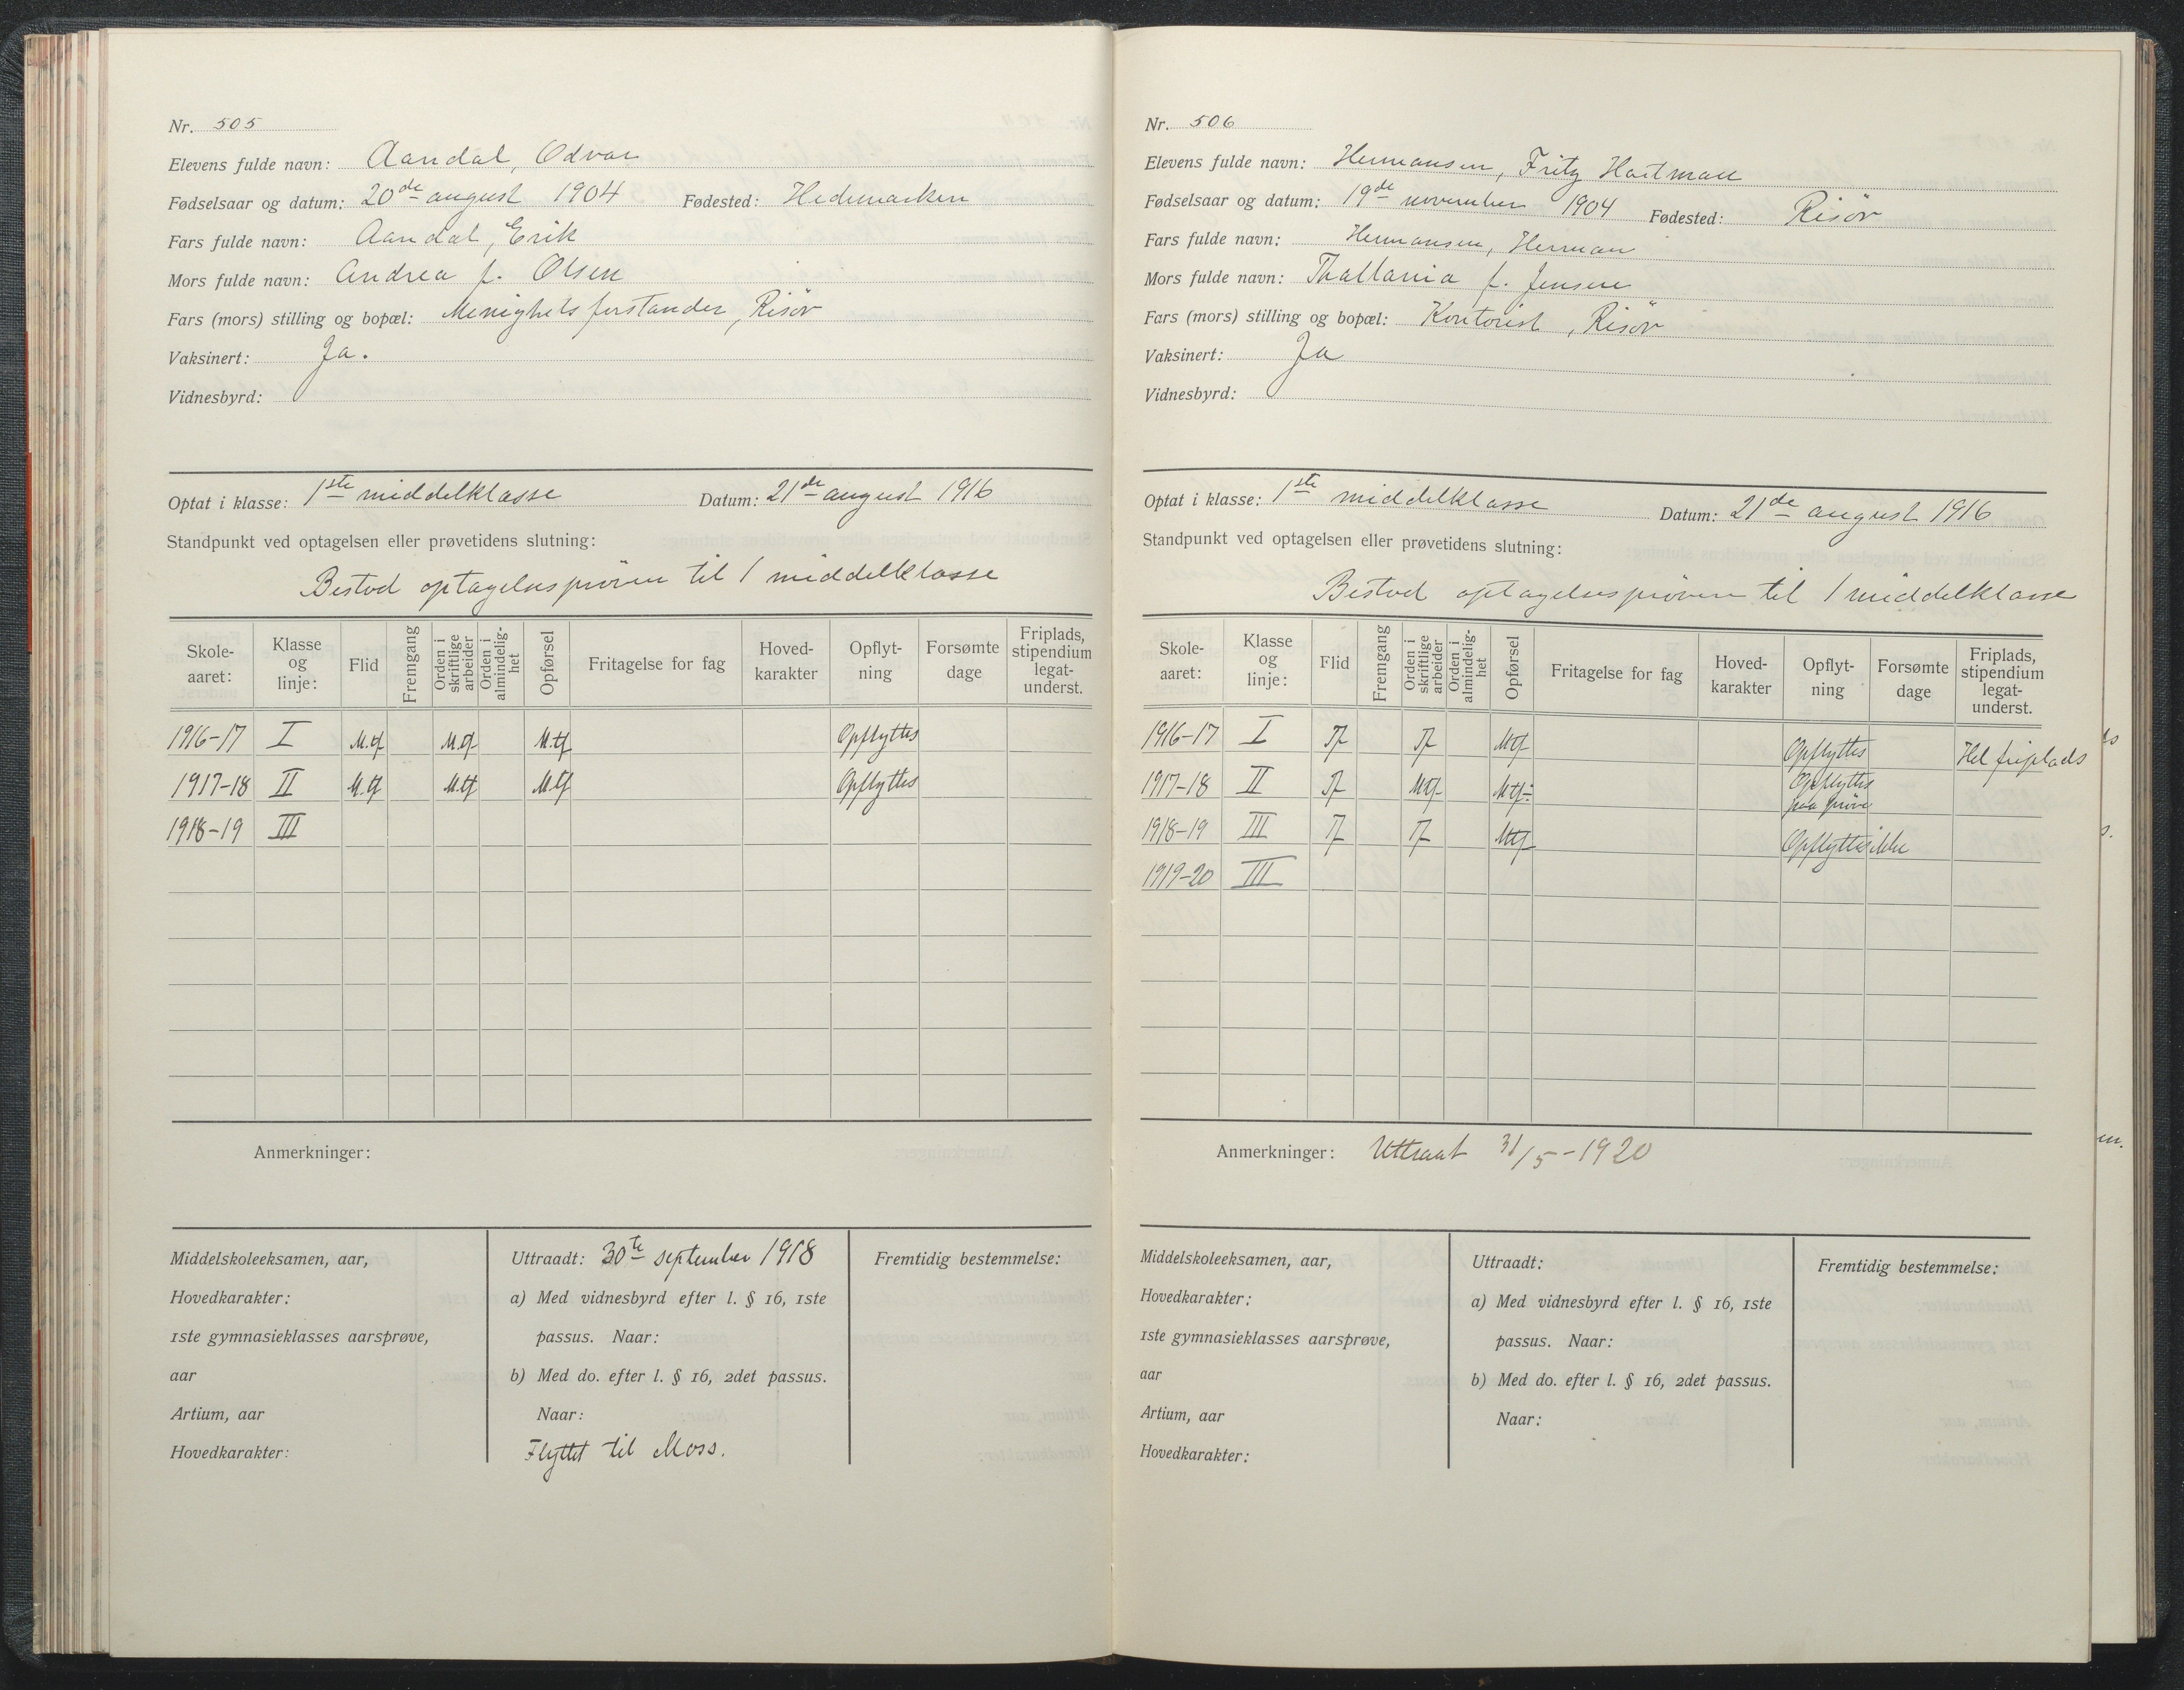 Nr. 505
Elevens fulde navn: Aandal, Odvar
Fødselsaar og datum: 20de august 1904 Fødested: Hedemarken
Fars fulde navn: Aandal, Erik
Mors fulde navn: Andrea f. Olsen
Fars (mors) stilling og bopæl: Menighetsforstander, Risör
Vaksinert: Ja.
Vidnesbyrd:
Optat i klasse: 1ste middelklasse Datum: 21de august 1916
Standpunkt ved optagelsen eller prøvetidens slutning:
Bestod optagelsespröven til 1 middelklasse
Skole-aaret: Klasse og linje: Flid Fremgang Orden i skriftlige arbeider Orden i almindelig-het Opførsel Fritagelse for fag Hoved-karakter Opflyt-ning Forsømte dage Friplads, stipendium legat-underst.
1916-17 I M.tf M.tf M.tf Opflyttes
1917-18 II M.tf M.tf M.tf Opflyttes
1918-19 III
Anmerkninger:
Middelskoleeksamen, aar,
Hovedkarakter:
1ste gymnasieklasses aarsprøve,
aar
Artium, aar
Hovedkarakter:
Uttraadt: 30te september 1918
a) Med vidnesbyrd efter l. § 16, 1ste
passus. Naar:
b) Med do. efter l. § 16, 2det passus.
Naar:
Flyttet til Moss.
Fremtidig bestemmelse:
Nr. 506
Elevens fulde navn: Hermansen, Fritz Hartman
Fødselsaar og datum: 19de november 1904 Fødested: Risör
Fars fulde navn: Hermansen, Herman
Mors fulde navn: f. Jensen
Fars (mors) stilling og bopæl: Kontorist, Risör
Vaksinert: Ja
Vidnesbyrd:
Optat i klasse: 1ste middelklasse Datum: 21de august 1916
Standpunkt ved optagelsen eller prøvetidens slutning:
Bestod optagelsespröven til 1 middelklasse
Skole-aaret: Klasse og linje: Flid Fremgang Orden i skriftlige arbeider Orden i almindelig-het Opførsel Fritagelse for fag Hoved-karakter Opflyt-ning Forsømte dage Friplads, stipendium legat-underst.
1916-17 I Tf Tf Mtf Opflyttes Hel friplads
1917-18 II Tf Mtf Mtf÷ Opflyttes paa pröve
1918-19 III Tf Tf Mtf Opflyttes ikke
1919-20 III
Anmerkninger: Uttraat 31/5-1920
Middelskoleeksamen, aar,
Hovedkarakter:
1ste gymnasieklasses aarsprøve,
aar
Artium, aar
Hovedkarakter:
Uttraadt:
a) Med vidnesbyrd efter l. § 16, 1ste
passus. Naar:
b) Med do. efter l. § 16, 2det passus.
Naar:
Fremtidig bestemmelse: